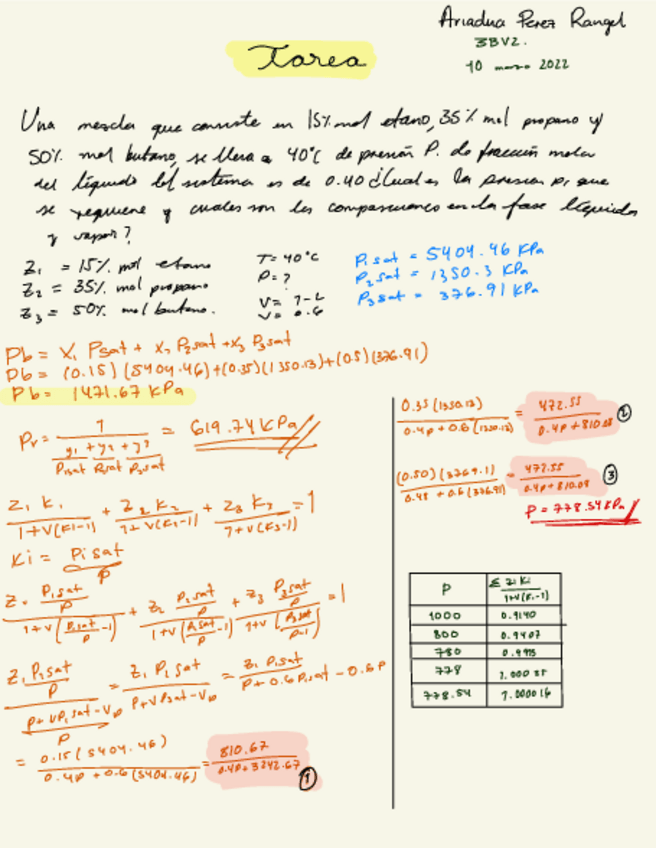 Ariadna Perez Rangel
3BV2.
10 marzo 2022
Tarea
Una mezcla que consiste en 15% mol etano, 35% mol propano y
50% mol butano, se lleva a 40°C de presión P. La fracción molar
del líquido del sistema es de 0.40 ¿Cual es la presion p, que
se requiere y cuales son las composiciones en la fase liquida
y vapor?
Z1 = 15% mol etano
Z2 = 35% mol propano
Z3 = 50% mol butano.
T= 40°C
P= ?
V= 1-L
V= 0.6
P1sat = 5404.46 KPa
P2sat = 1350.3 KPa
P3sat = 376.91 KPa
Pb = X1 Psat + X2 P2sat + X3 P3sat
Pb = (0.15)(5404.46)+(0.35)(1350.13)+(0.5)(376.91)
Pb = 1471.67 KPa
Pr = 1 / (y1/P1sat + y2/P2sat + y3/P3sat) = 619.74 KPa
Z1 K1 / 1+V(K1-1) + Z2 K2 / 1+V(K2-1) + Z3 K3 / 1+V(K3-1) = 1
Ki = Pisat / P
Z1 P1sat/P / 1+V(P1sat/P -1) + Z2 P2sat/P / 1+V(P2sat/P -1) + Z3 P3sat/P / 1+V(P3sat/P -1) = 1
Z1 P1sat/P / P+VP1sat-Vp/P = Z1 P1sat / P+VPsat-Vp = Z1 P1sat / P+0.6P1sat-0.6P
= 0.15(5404.46) / 0.4P+0.6(5404.46) = 810.67 / 0.4P+3242.67 ①
0.35(1350.13) / 0.4P+0.6(1350.13) = 472.55 / 0.4P+810.08 ②
(0.50)(3769.1) / 0.4P+0.6(376.91) = 472.55 / 0.4P+810.08 ③
P=778.54KPa
P Σ ZiKi / 1+V(Ki-1)
1000 0.9140
800 0.9907
780 0.9993
778
778.54 1.000016